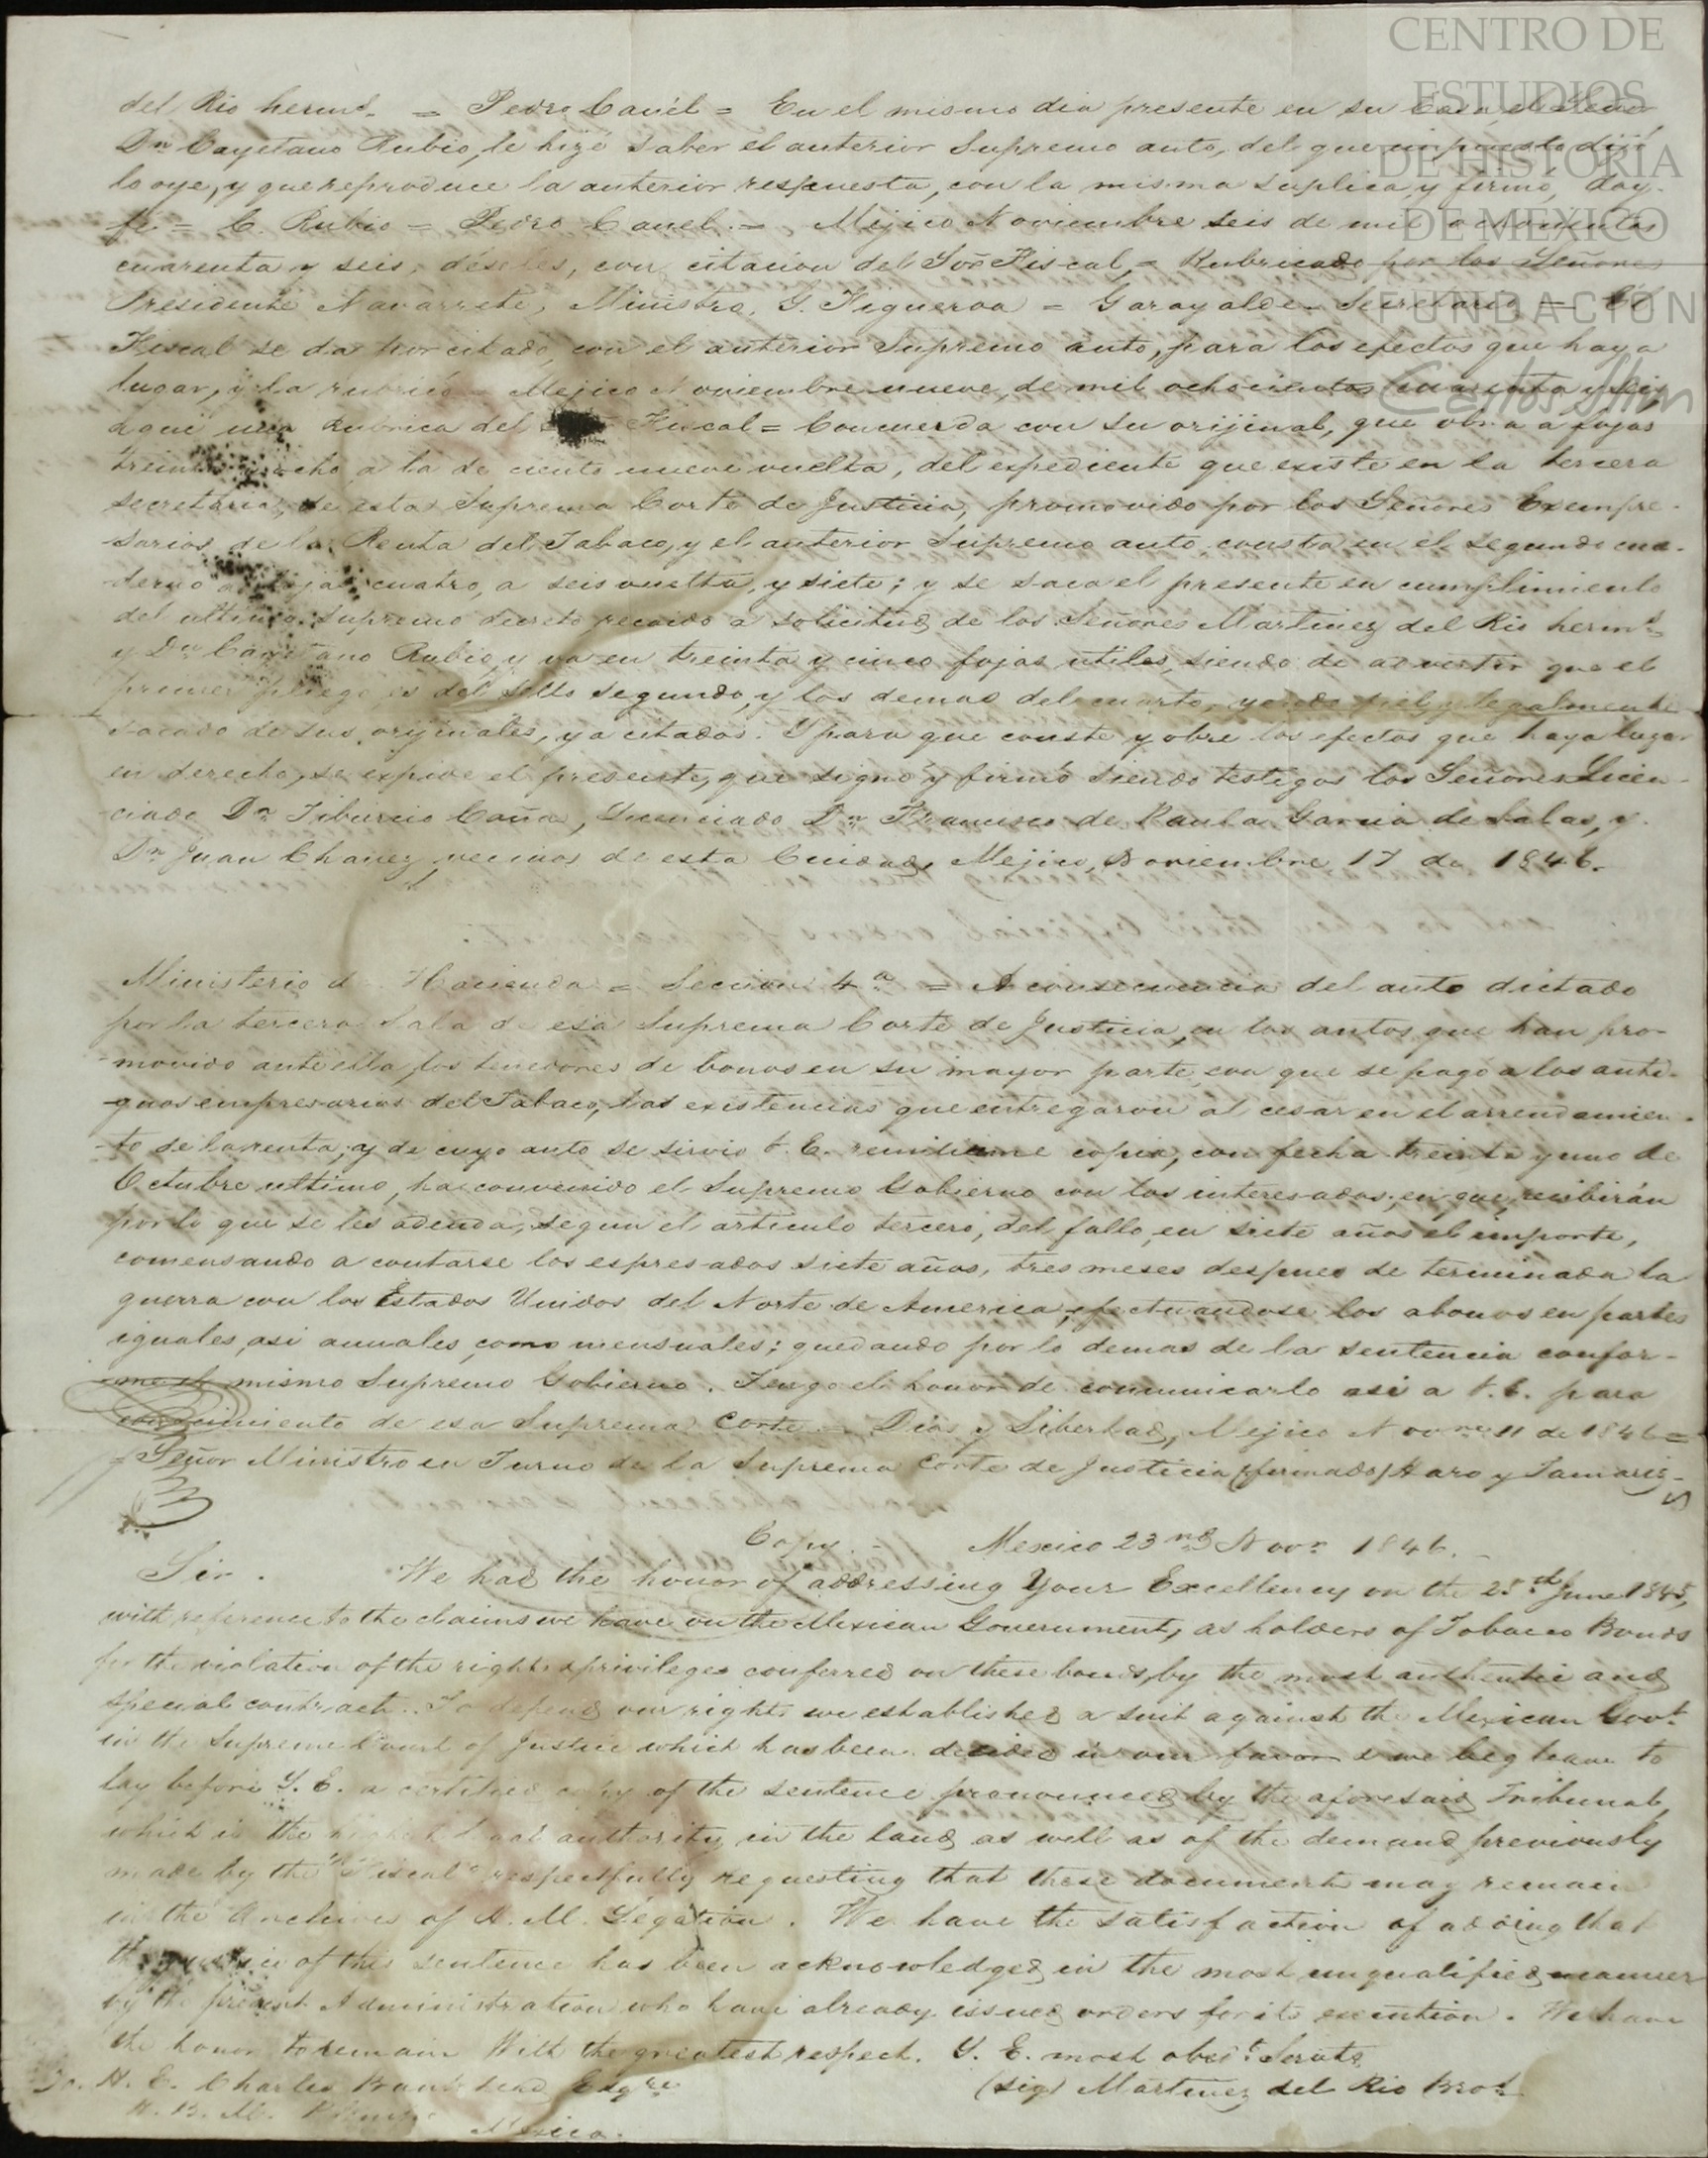 CENTRO DE
ESTUDIOS
DE HISTORIA
DE MEXICO
FUNDACIÓN
Carlos Slim
del Rio herms. = Pedro Canel = En el mismo dia presente en su Casa el Señor
Dn Cayetano Rubio, le hizé saber el anterior Supremo auto, del que impuesto dijo
lo oye, y que reproduce la anterior respuesta, con la misma suplica, y firmó, doy-
fé = C. Rubio = Pedro Canel. = Mejico Noviembre seis de mil ochocientos
cuarenta y seis, déseles, con citacion del Sor Fiscal, = Rubricado por los Señores
Presidente Navarrete, Ministro, G. Figueroa = Garayalde Secretario = El
Fiscal se da por citado, con el anterior Supremo auto, para los efectos que haya
lugar, y la rubricó = Mejico Noviembre nueve, de mil ochocientos cuarenta y seis
Aqui una Rubrica del Fiscal = Concuerda con su orijinal, que obra a fojas
treinta y ocho a la de ciento nueve vuelta, del expediente que existe en la tercera
secretaria, de esta Suprema Corte de Justicia, promovido por los Señores Exempre-
sarios de la Renta del Tabaco, y el anterior Supremo auto, consta en el segundo cua-
derno a fojas cuatro, a seis vuelta, y siete; y se saca el presente en cumplimiento
del ultimo Supremo decreto recaido a solicitud de los Señores Martinez del Rio herms
y Dn Cayetano Rubio, y va en treinta y cinco fojas utiles, siendo de advertir que el
primer pliego es del sello segundo, y los demas del cuarto, yendo fiel y legalmente
sacado de sus orijinales, ya citados. Y para que conste y obre los efectos que haya lugar
en derecho, se expide el presente, que signó y firmó siendo testigos los Señores Licen-
ciado Dn Tiburcio Caña, Licenciado Dn Francisco de Paula Garcia de Salas, y
Dn Juan Chanez vecinos de esta Cuidad, Mejico, Noviembre 17 de 1846.
Ministerio de Hacienda = Seccion 4a = A consecuencia del auto dictado
por la tercera Sala de esa Suprema Corte de Justicia, en los autos que han pro-
-movido ante ella, los tenedores de bonos en su mayor parte, con que se pagó a los anti-
-guos empresarios del Tabaco, las existencias que entregaron al cesar en el arrendamien-
-to de la renta; y de cuyo auto se sirvio V. E. remitirme copia, con fecha treinta y uno de
Octubre ultimo, ha convenido el Supremo Gobierno con los interesados, en que, recibirán
por lo que se les adeuda, segun el artículo tercero, del fallo, en siete años el importe,
comensando a contarse los espresados siete años, tres meses despues de terminada la
guerra con los Estados Unidos del Norte de America, efectuandose los abonos en partes
iguales, asi anuales, como mensuales; quedando por lo demas de la sentencia confor-
-me el mismo Supremo Gobierno. Tengo el honor de comunicarlo asi a V. E. para
conocimiento de esa Suprema Corte = Dios y Libertad, Mejico Novre 11 de 1846 =
Señor Ministro en Turno de la Suprema Corte de Justicia (firmado) Haro y Tamariz-
Copy. - Mexico 23nd Novr 1846. -
Sir. We had the honor of addressing Your Excellency on the 25th June 1845,
with reference to the claims we have on the Mexican Government, as holders of Tobacco Bonds
for the violation of the rights & privileges conferred on these bonds, by the most authentic and
special contract. To defend our rights we established a suit against the Mexican Govt.
in the Supreme Court of Justice which has been decided in our favor & we beg leave to
lay before Y. E. a certified copy of the sentence pronounced by the aforesaid Tribunal,
which is the highest legal authority in the land, as well as of the demand previously
made by the "Fiscal" respectfully requesting that these documents may remain
in the Archives of H. M. Legation. We have the satisfaction of adding that
the justice of this sentence has been acknowledged in the most unqualified manner
by the present Administration who have already issued orders for its execution. We have
the honor to remain With the greatest respect. Y. E. most obedt. Servts
(sig) Martinez del Rio Bros.
To. H. E. Charles Bankhead Esqre
H. B. M.
Mexico.